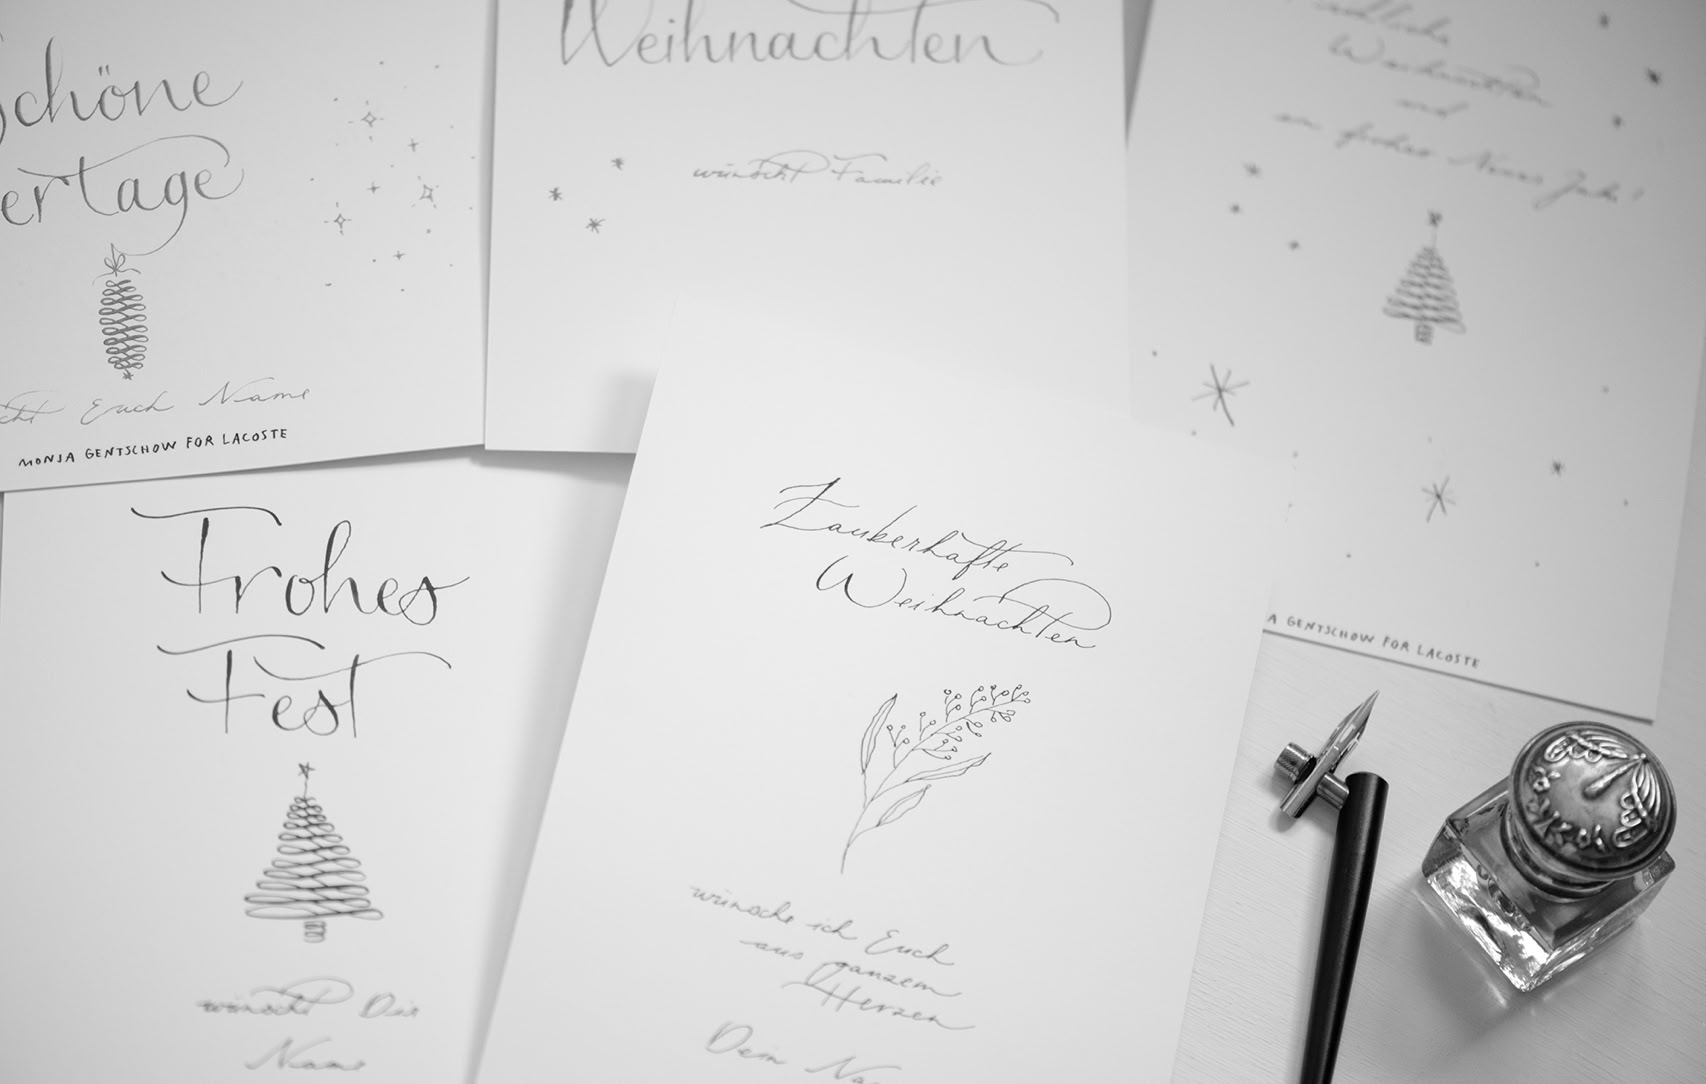 Schöne
ertage
cht Euch Name
MONJA GENTSCHOW FOR LACOSTE
Weihnachten
wünscht Familie
Weihnachten
und
ein frohes Neues Jahr!
A GENTSCHOW FOR LACOSTE
Frohes
Fest
wünscht Dir
Name
Zauberhafte
Weihnachten
wünsche ich Euch
aus ganzem
Herzen
Dein Na